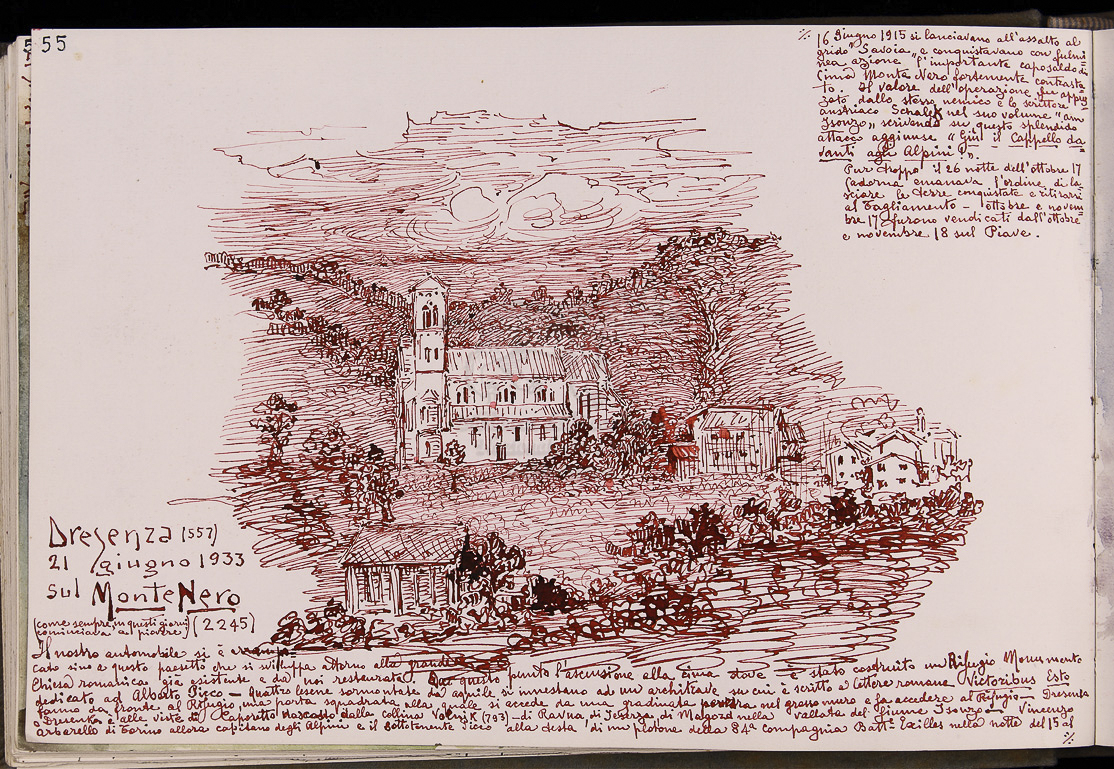 55
Dresenza (557)
21 giugno 1933
sul Monte Nero
(come sempre in questi giorni (2245)
cominciava a piovere)
Il nostro automobile si è arrampi=
cato sino a questo paesetto che si sviluppa attorno alla grande
Chiesa romanica già esistente e da noi restaurata. Da questo punto l'ascensione alla cima dove è stato costruito un Rifugio Monumento
dedicato ad Alberto Picco — Quattro lesene sormontate da aquile si innestano ad un architrave su cui è scritto a lettere romane Victoribus Esto
fanno da fronte al Rifugio, una porta squadrata alla quale si accede da una gradinata nel grosso muro e fa accedere al Rifugio — Dresenza
è alle viste di Caporetto nascosto dalla collina Volnik (793) — di Ravna, di Jedrza, di Magozd nella vallata del fiume Isonzo — Vincenzo
Arbarello di Torino allora capitano degli Alpini e il sottotenente Picco alla testa di un plotone della 84ª compagnia Batt= Exilles nella notte del 15 al
%
%
16 Giugno 1915 si lanciavano all'assalto al
grido "Savoia" e conquistavano con fulmi=
nea azione l'importante caposaldo di
Cima Monte Nero fortemente contrasta=
to. Il valore dell'operazione fu appre=
zato dallo stesso nemico e lo scrittore
austriaco Schalek nel suo volume "am
Isonzo" scrivendo su questo splendido
attacco aggiunse "Giù il Cappello da=
vanti agli Alpini!".
Pur troppo il 26 notte dell'ottobre 17
Cadorna emanava l'ordine di la=
sciare le terre conquistate e ritirarsi
al Tagliamento — ottobre e novem=
bre 17 furono vendicati dall'ottobre
e novembre 18 sul Piave.